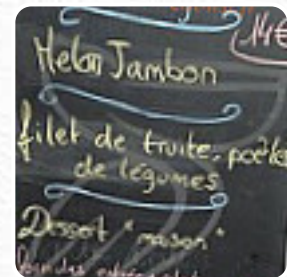 14€
Melon Jambon
filet de truite, poêlée
de légumes
Dessert "maison"